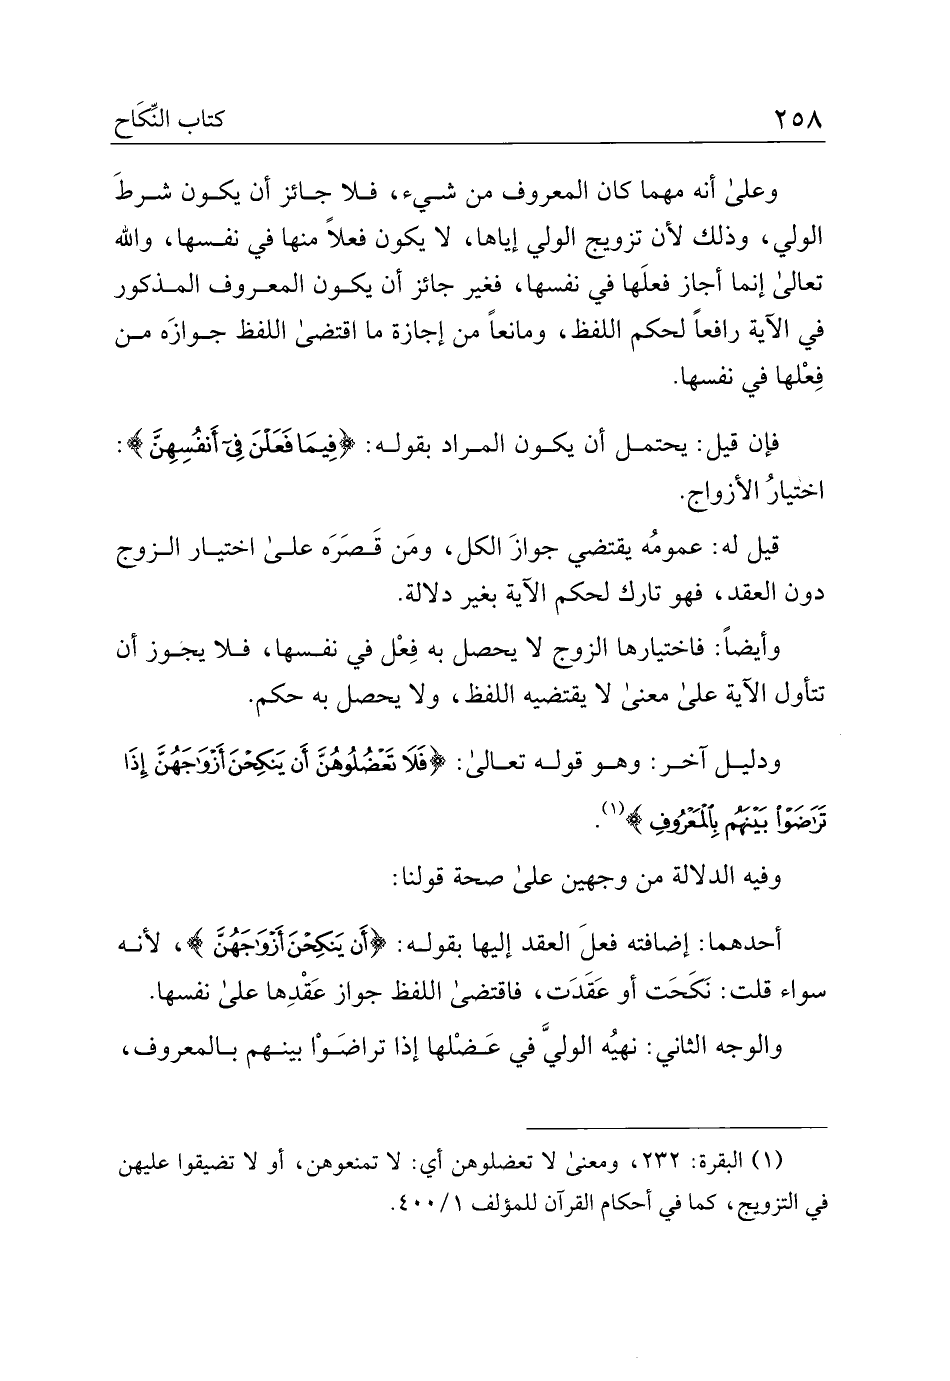 ٢٥٨ كتاب النِّكَاح
وعلىٰ أنه مهما كان المعروف من شيء، فلا جائز أن يكون شرطَ
الولي، وذلك لأن تزويج الولي إياها، لا يكون فعلاً منها في نفسها، والله
تعالىٰ إنما أجاز فعلَها في نفسها، فغير جائز أن يكون المعروف المذكور
في الآية رافعاً لحكم اللفظ، ومانعاً من إجازة ما اقتضىٰ اللفظ جوازَه من
فِعْلها في نفسها.
فإن قيل: يحتمل أن يكون المراد بقوله: ﴿فِيمَا فَعَلْنَ فِىٓ أَنفُسِهِنَّ﴾:
اختيارُ الأزواج.
قيل له: عمومُه يقتضي جوازَ الكل، ومَن قَصَرَه علىٰ اختيار الزوج
دون العقد، فهو تارك لحكم الآية بغير دلالة.
وأيضاً: فاختيارها الزوج لا يحصل به فِعْل في نفسها، فلا يجوز أن
تتأول الآية علىٰ معنىٰ لا يقتضيه اللفظ، ولا يحصل به حكم.
ودليل آخر: وهو قوله تعالىٰ: ﴿فَلَا تَعْضُلُوهُنَّ أَن يَنكِحْنَ أَزْوَٰجَهُنَّ إِذَا
تَرَٰضَوْا۟ بَيْنَهُم بِٱلْمَعْرُوفِ﴾(١).
وفيه الدلالة من وجهين علىٰ صحة قولنا:
أحدهما: إضافته فعلَ العقد إليها بقوله: ﴿أَن يَنكِحْنَ أَزْوَٰجَهُنَّ﴾، لأنه
سواء قلت: نَكَحَت أو عَقَدَت، فاقتضىٰ اللفظ جواز عَقْدِها علىٰ نفسها.
والوجه الثاني: نهيُه الوليَّ في عَضْلها إذا تراضَوْا بينهم بالمعروف،
(١) البقرة: ٢٣٢، ومعنىٰ لا تعضلوهن أي: لا تمنعوهن، أو لا تضيقوا عليهن
في التزويج، كما في أحكام القرآن للمؤلف ٤٠٠/١.